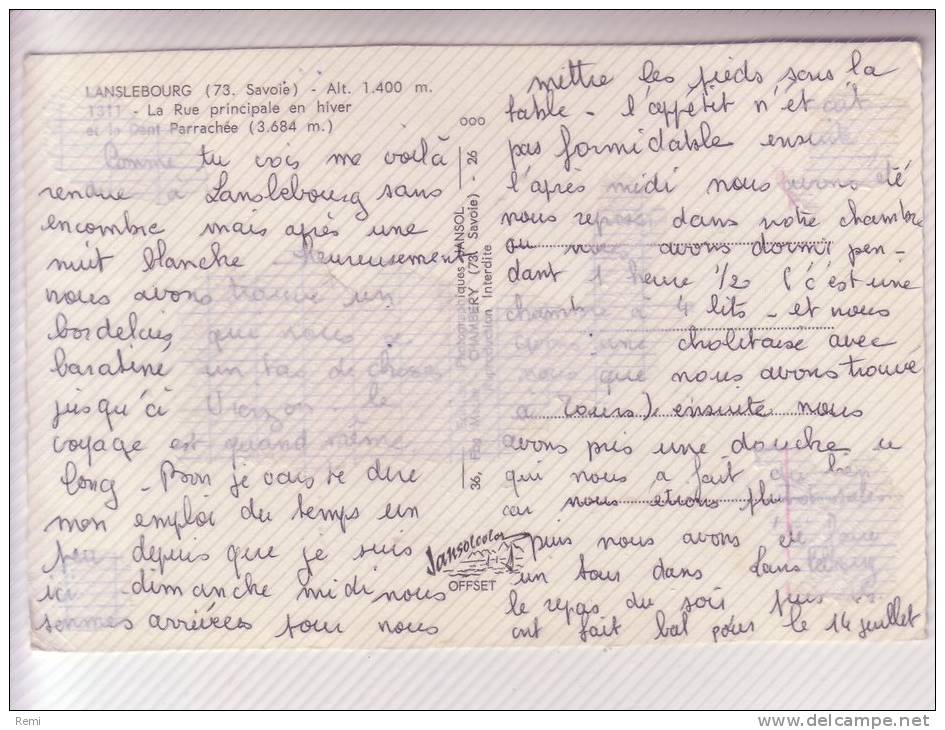 LANSLEBOURG (73. Savoie) - Alt. 1.400 m.
1311 - La Rue principale en hiver
et la Dent Parrachée (3.684 m.)
Comme tu vois me voilà
rendue à Lanslebourg sans
encombre mais après une
nuit blanche - Heureusement
nous avons trouvé un
bordelais que nous a
baratiné un tas de choses
jusqu'à Vierzon - le
voyage est quand même
long - Bon je vais te dire
mon emploi du temps un
peu depuis que je suis
ici - dimanche midi nous
sommes arrivées pour nous
mettre les pieds sous la
table - l'appétit n'était
pas formidable ensuite
l'après midi nous avons été
nous reposer dans notre chambre
ou nous avons dormi pen-
dant 1 heure 1/2 (c'est une
chambre à 4 lits - et nous
avons une choletaise avec
nous que nous avons trouvé
à Tours) ensuite nous
avons pris une douche
qui nous a fait du bien
car nous étions
puis nous avons été faire
un tour dans Lanslebourg
le repas du soir puis ils
ont fait bal pour le 14 juillet
OOO
36, Fbg Photographiques JANSOL
CHAMBERY (73. Savoie) - 26
Reproduction Interdite
Jansolcolor
OFFSET
Remi
delcampe.net